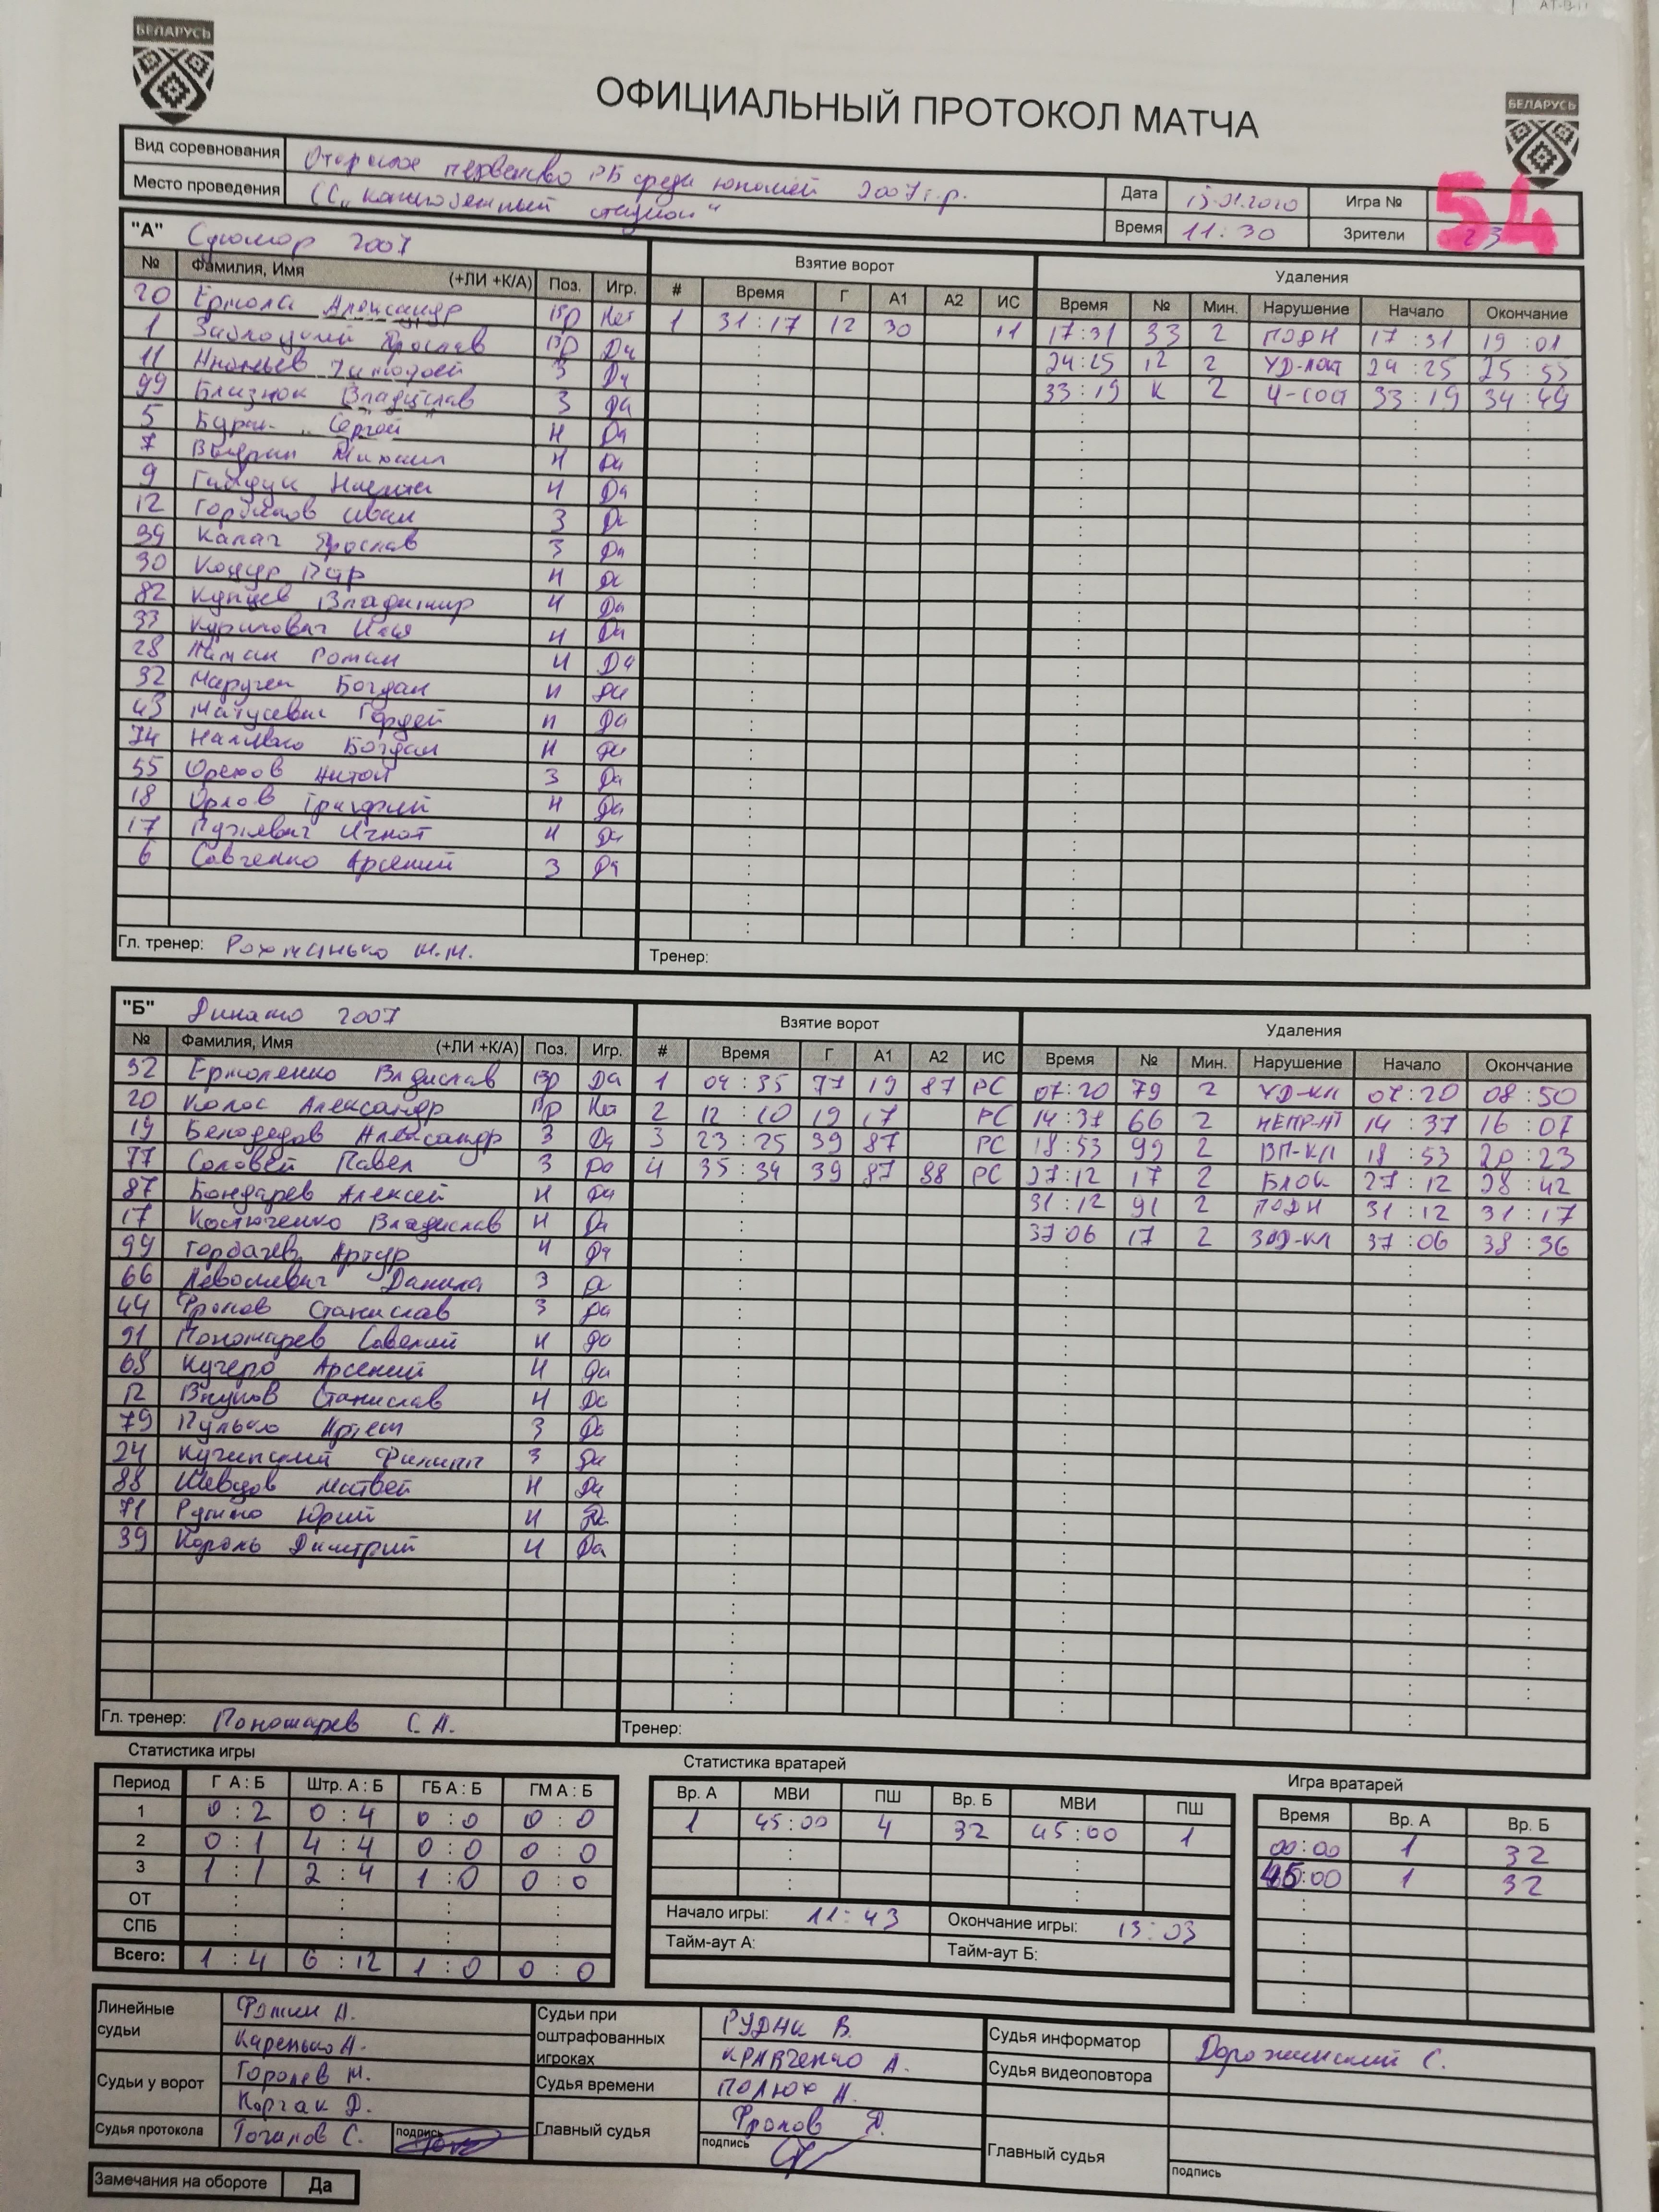 БЕЛАРУСЬ
БЕЛАРУСЬ
ОФИЦИАЛЬНЫЙ ПРОТОКОЛ МАТЧА
Вид соревнования первенство РБ среди юношей 2007 г.р.
Место проведения
Дата 2020 Игра № 54
Время 11:30 Зрители
"А" 2007
Взятие ворот Удаления
№ Фамилия, Имя (+ЛИ +К/А) Поз. Игр. # Время Г А1 А2 ИС Время № Мин. Нарушение Начало Окончание
20 Ермола Александр Вр Нет 1 31:17 12 30 +1 17:31 33 2 ПОДН 17:31 19:01
1 Ярослав Вр Да 24:25 12 2 24:25 25:55
11 З Да 33:19 К 2 Ч-СОСТ 33:19 34:49
99 Близнюк Владислав З Да
5 Сергей Н Да
7 Михаил Н Да
9 Гайдук Никита Н Да
12 Иван З Да
39 Калач Ярослав З Да
30 Н Да
82 Купцев Владимир Н Да
33 Илья Н Да
28 Роман Н Да
32 Богдан Н Да
43 Матусевич Гордей Н Да
74 Богдан Н Да
55 Орехов Антон З Да
18 Орлов Н Да
17 Игнат Н Да
6 Савченко Арсений З Да
Гл. тренер: М.М. Тренер:
"Б" Динамо 2007
Взятие ворот Удаления
№ Фамилия, Имя (+ЛИ +К/А) Поз. Игр. # Время Г А1 А2 ИС Время № Мин. Нарушение Начало Окончание
32 Ермоленко Владислав Вр Да 1 04:35 77 19 87 РС 07:20 79 2 УД-КЛ 07:20 08:50
20 Колос Александр Вр Нет 2 12:10 19 17 РС 14:37 66 2 НЕПР-АТ 14:37 16:07
19 Белодедов Александр З Да 3 23:25 39 87 РС 18:53 99 2 ВП-КЛ 18:53 20:23
77 Соловей Павел З Да 4 35:34 39 87 88 РС 27:12 17 2 БЛОК 27:12 28:42
87 Бондарев Алексей Н Да 31:12 91 2 ПОДН 31:12 31:17
17 Костюченко Владислав Н Да 37:06 17 2 ЗАД-КЛ 37:06 38:36
99 Горбачев Артур Н Да
66 Данила З Да
44 Фролов Станислав З Да
91 Пономарев Савелий Н Да
68 Кучеро Арсений Н Да
12 Внуков Станислав Н Да
79 Пулько Артем З Да
24 Кучинский Филипп З Да
88 Шевцов Матвей Н Да
71 Юрий Н Да
39 Король Дмитрий Н Да
Гл. тренер: Пономарев С.А. Тренер:
Статистика игры Статистика вратарей Игра вратарей
Период Г А : Б Штр. А : Б ГБ А : Б ГМ А : Б
1 0:2 0:4 0:0 0:0
2 0:1 4:4 0:0 0:0
3 1:1 2:4 1:0 0:0
ОТ
СПБ
Всего: 1:4 6:12 1:0 0:0
Вр. А МВИ ПШ Вр. Б МВИ ПШ
1 45:00 4 32 45:00 1
Начало игры: 11:43 Окончание игры: 13:03
Тайм-аут А: Тайм-аут Б:
Время Вр. А Вр. Б
00:00 1 32
45:00 1 32
Линейные судьи Фомин А.
Каренько А.
Судьи у ворот Горолев М.
Корчак Д.
Судья протокола С. подпись
Судьи при оштрафованных игроках РУДНИ В.
КРАВЧЕНКО А.
Судья времени ПОЛЮХ А.
Главный судья Фролов Д.
подпись
Судья информатор Дорожинский С.
Судья видеоповтора
Главный судья
подпись
Замечания на обороте Да